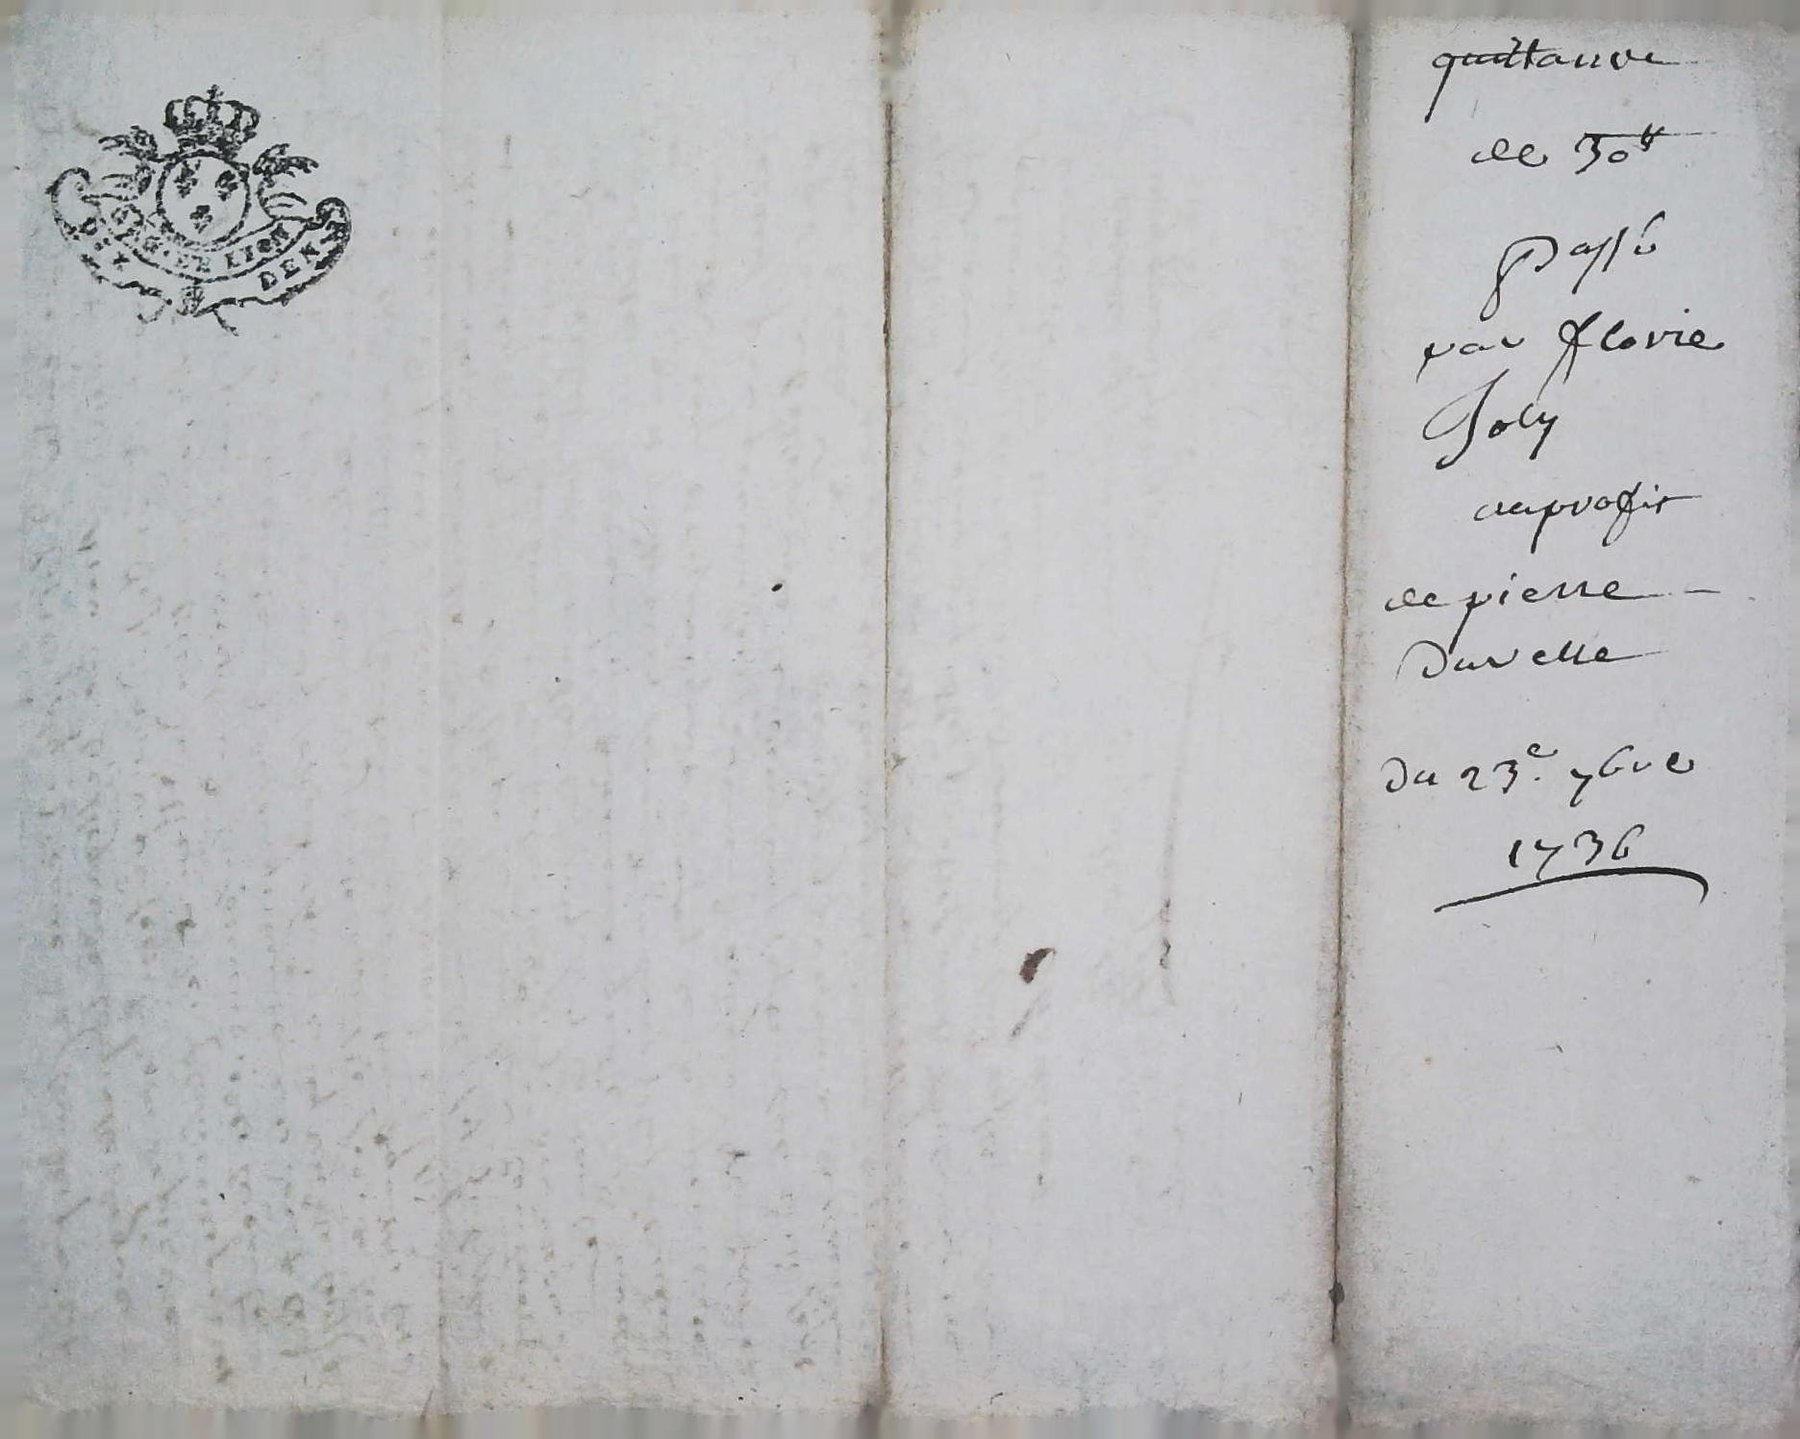 GENER LYON
DEN
quittance
de 30ᵗᵗ
passé
par florie
Joly
au profit
de pierre
Duvelle
Du 23ᵉ. 7bre
1736